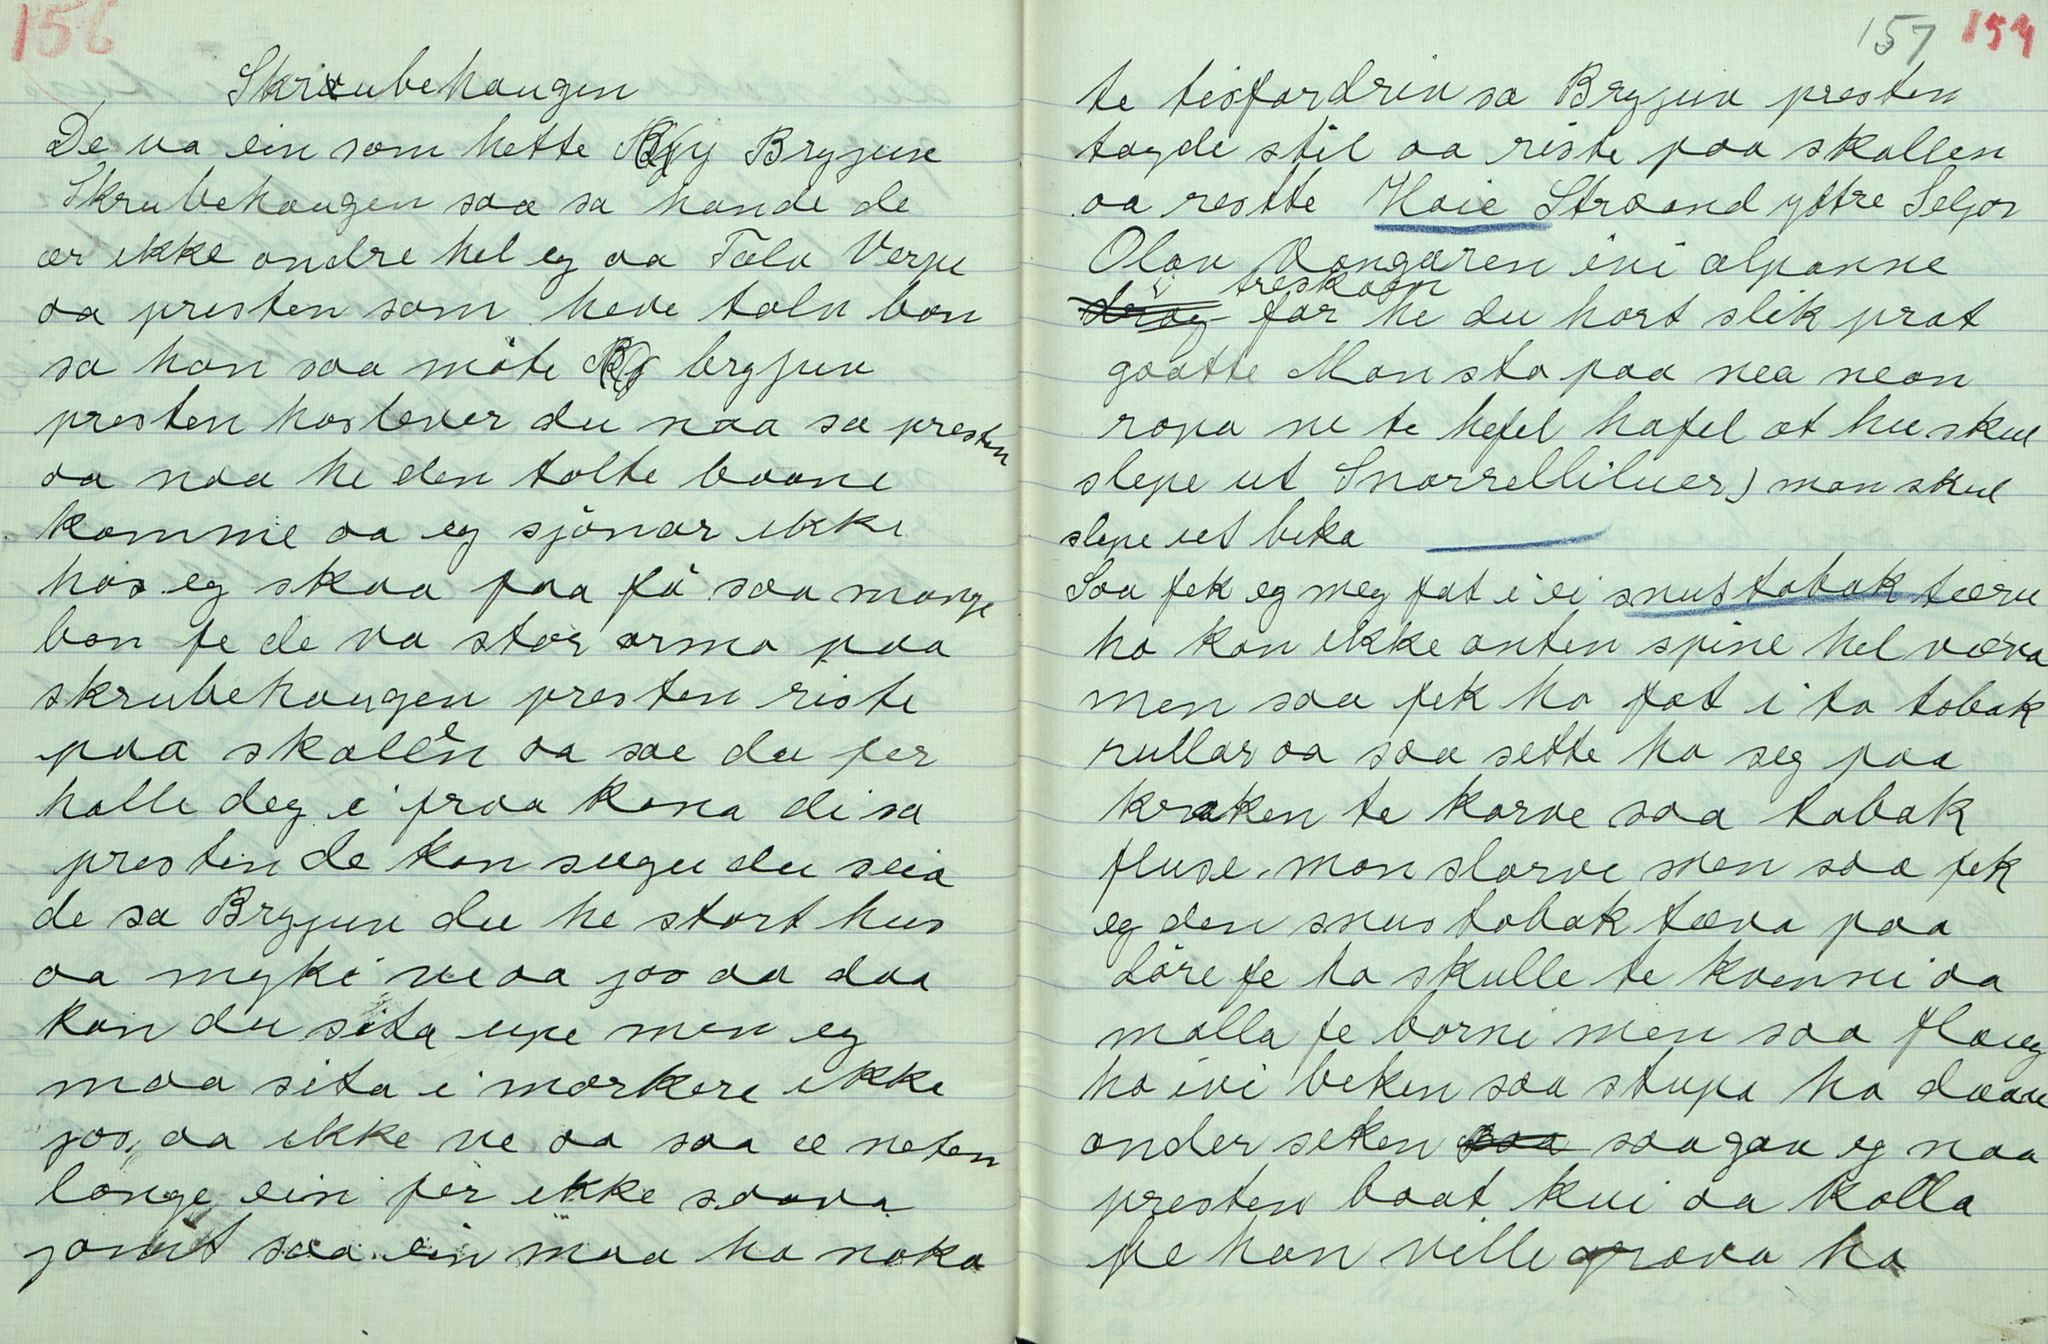 156
Skrubehaugen
De va ein som hette Brygjuv
Skrubehaugen saa sa hande de
ær ikke andre hel eg aa Tala Verpe
aa presten som heve talv bon
sa han saa møte brygjuv
presten hoslever du naa sa presten
aa naa he den tolte baane
komme aa eg sjönar ikke
hos eg skaa paa få saa mange
bon fe de va stor arma paa
skrubehaugen presten riste
paa skallen aa sae du fer
halle deg i fraa kona di sa
presten de kan sugu du seia
de sa Brygjuv du he stort hus
aa myki vea jos aa daa
kan du sita upe men eg
maa sita i morkere ikke
jos, aa ikke ve aa saa æ neten
lange ein fer ikke saava
jamt saa ein maa ha noka
157 157
te tisfordrin sa Brygjuv presten
tagde stil aa riste paa skallen
aa restte Haie Straand yttre Seljor
Olav Vangaren ivi alpanne
treskoen
far he du hort slik prat
gaatte Mansta paa nea nean
ropa ne te hefel hafel at hu skul
slepe ut Snorrelliluer) man skul
slepe ut beka
Saa fek eg meg fat i ei snustobak tæve
ho kan ikke anten spine hel væva
men saa fek ho fat i to tobak
rullar aa saa sette ho seg paa
kraken te karve saa tobak
fluse. man slarve men saa fek
eg den snustobak tæva paa
Löre fe ho skulle te kvenni aa
malla fe borni men saa flaug
ho ivi beken saa stupa ho daaue
onder seken saa gav eg naa
presten baat kui aa kalla
fe han ville grava ho